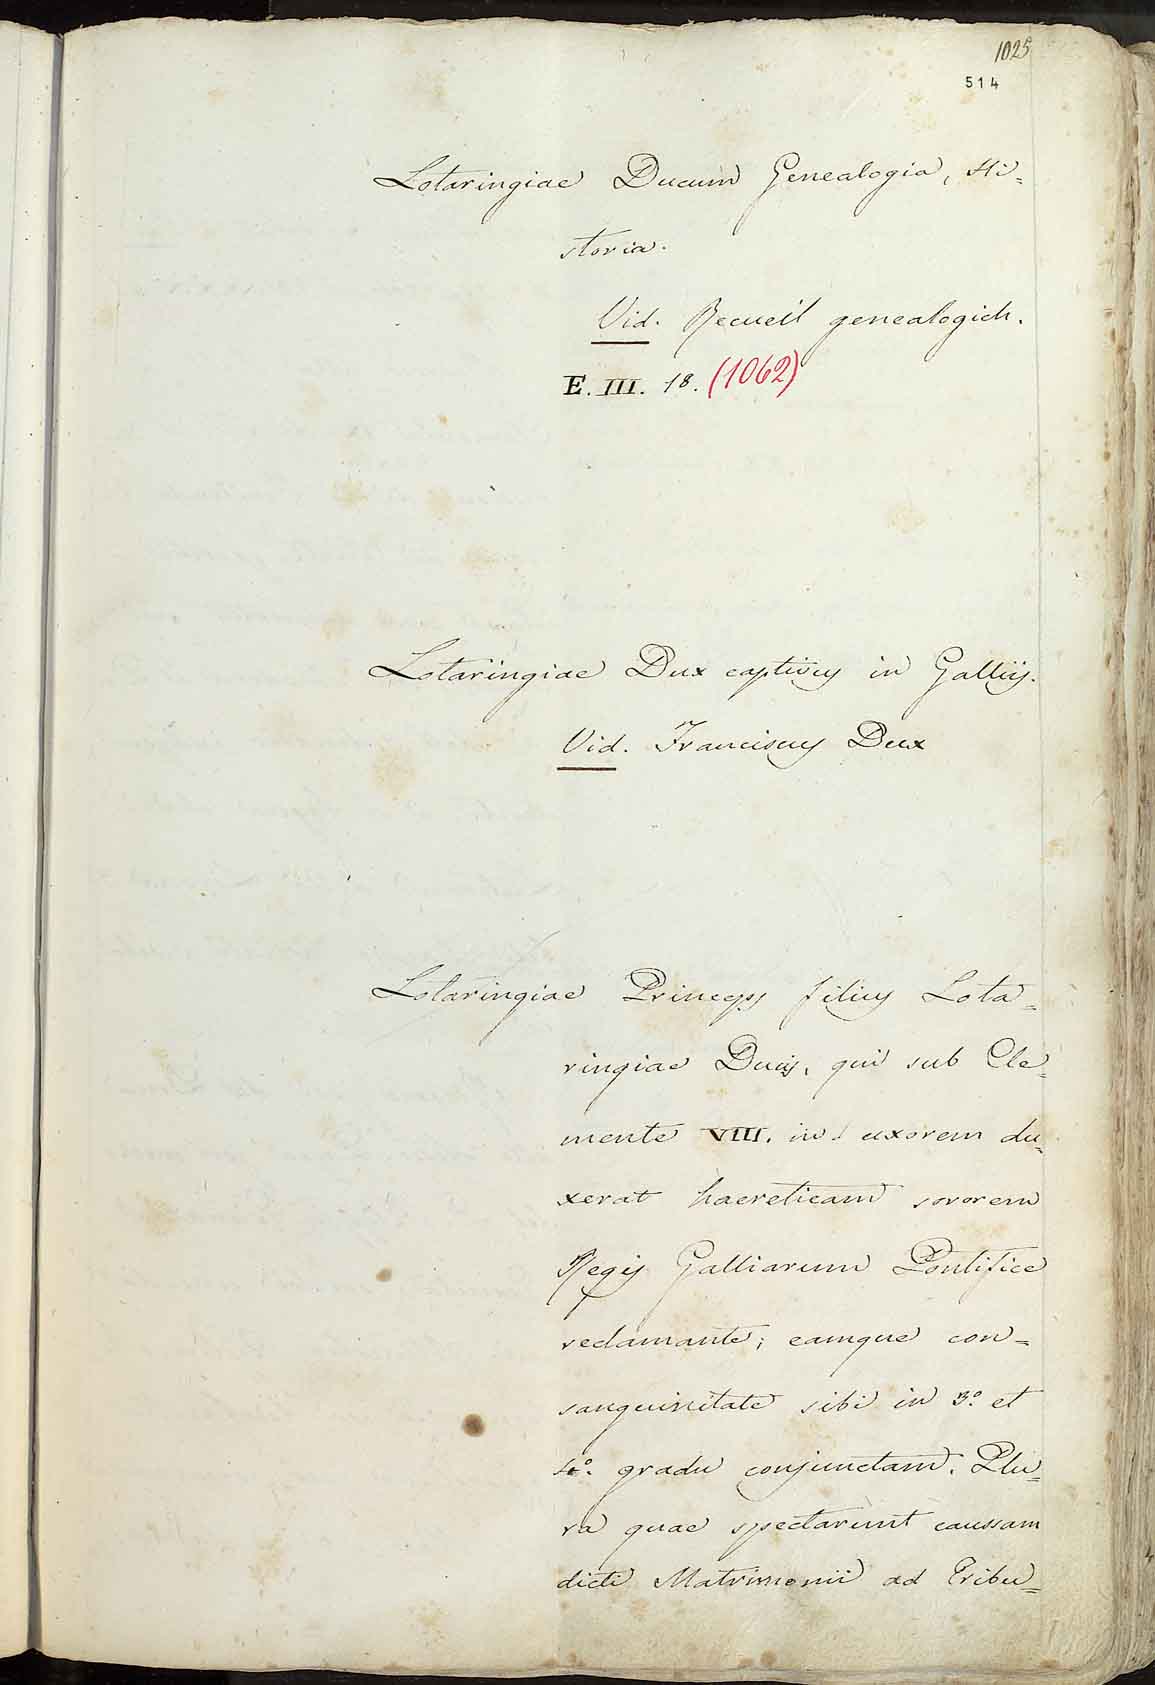 1025
514
Lotaringiae Ducum Genealogia, Hi=
storia.
Vid. Recueil genealogich.
E. III. 18. (1062)
Lotaringiae Dux captivus in Galliis.
Vid. Franciscus Dux
Lotaringiae Princeps filius Lota=
ringiae Ducis, qui sub Cle=
mente VIII. in uxorem du=
xerat haereticam sororem
Regis Galliarum Pontifice
reclamante; eamque con=
sanguinitate sibi in 3.º et
4.º gradu conjunctam. Plu=
ra quae spectarunt caussam
dicti Matrimonii ad Tribu=